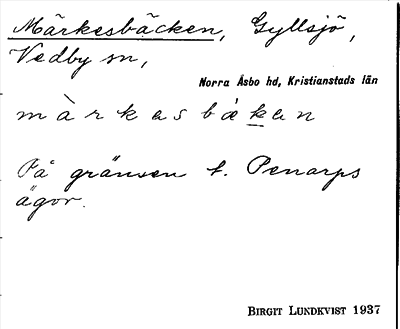 Märkesbäcken, Gyllsjö,
Vedby sn,
Norra Åsbo hd, Kristianstads län
màrkasbákan
På gränsen t. Penarps
ägor.
BIRGIT LUNDKVIST 1937